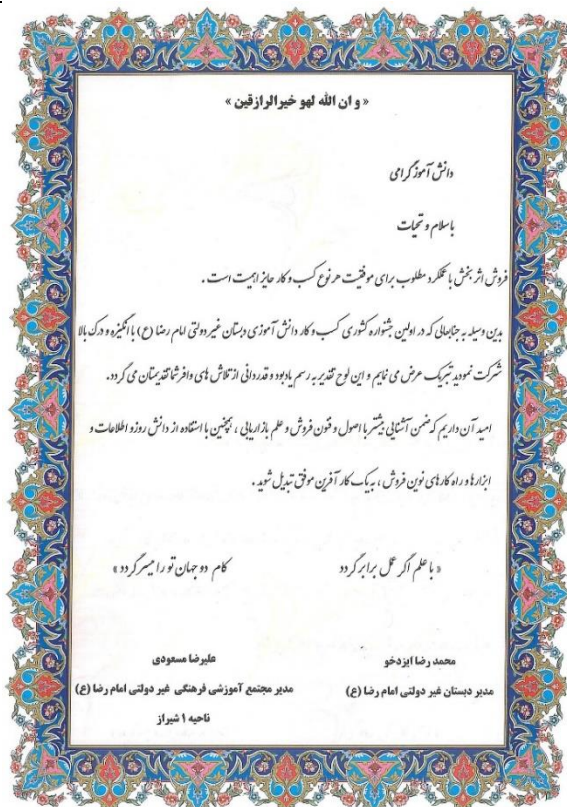 « و ان الله لهو خیرالرازقین »
دانش آموز گرامی
باسلام و تحیات
فروش اثربخش با عملکرد مطلوب برای موفقیت هر نوع کسب و کار حایز اهمیت است .
بدین وسیله به جنابعالی که در اولین جشنواره کشوری کسب و کار دانش آموزی دبستان غیردولتی امام رضا (ع) با انگیزه و درک بالا
شرکت نمودید تبریک عرض می نمایم و این لوح تقدیر به رسم یادبود و قدردانی از تلاش های وافر شما تقدیمتان می گردد.
امید آن داریم که ضمن آشنایی بیشتر با اصول و فنون فروش و علم بازاریابی ، همچنین با استفاده از دانش روز و اطلاعات و
ابزارها و راه کارهای نوین فروش ، به یک کارآفرین موفق تبدیل شوید .
« با علم اگر عمل برابر گردد کام دو جهان تو را میسر گردد »
محمد رضا ایزدخو
مدیر دبستان غیر دولتی امام رضا (ع)
علیرضا مسعودی
مدیر مجتمع آموزشی فرهنگی غیر دولتی امام رضا (ع)
ناحیه ۱ شیراز